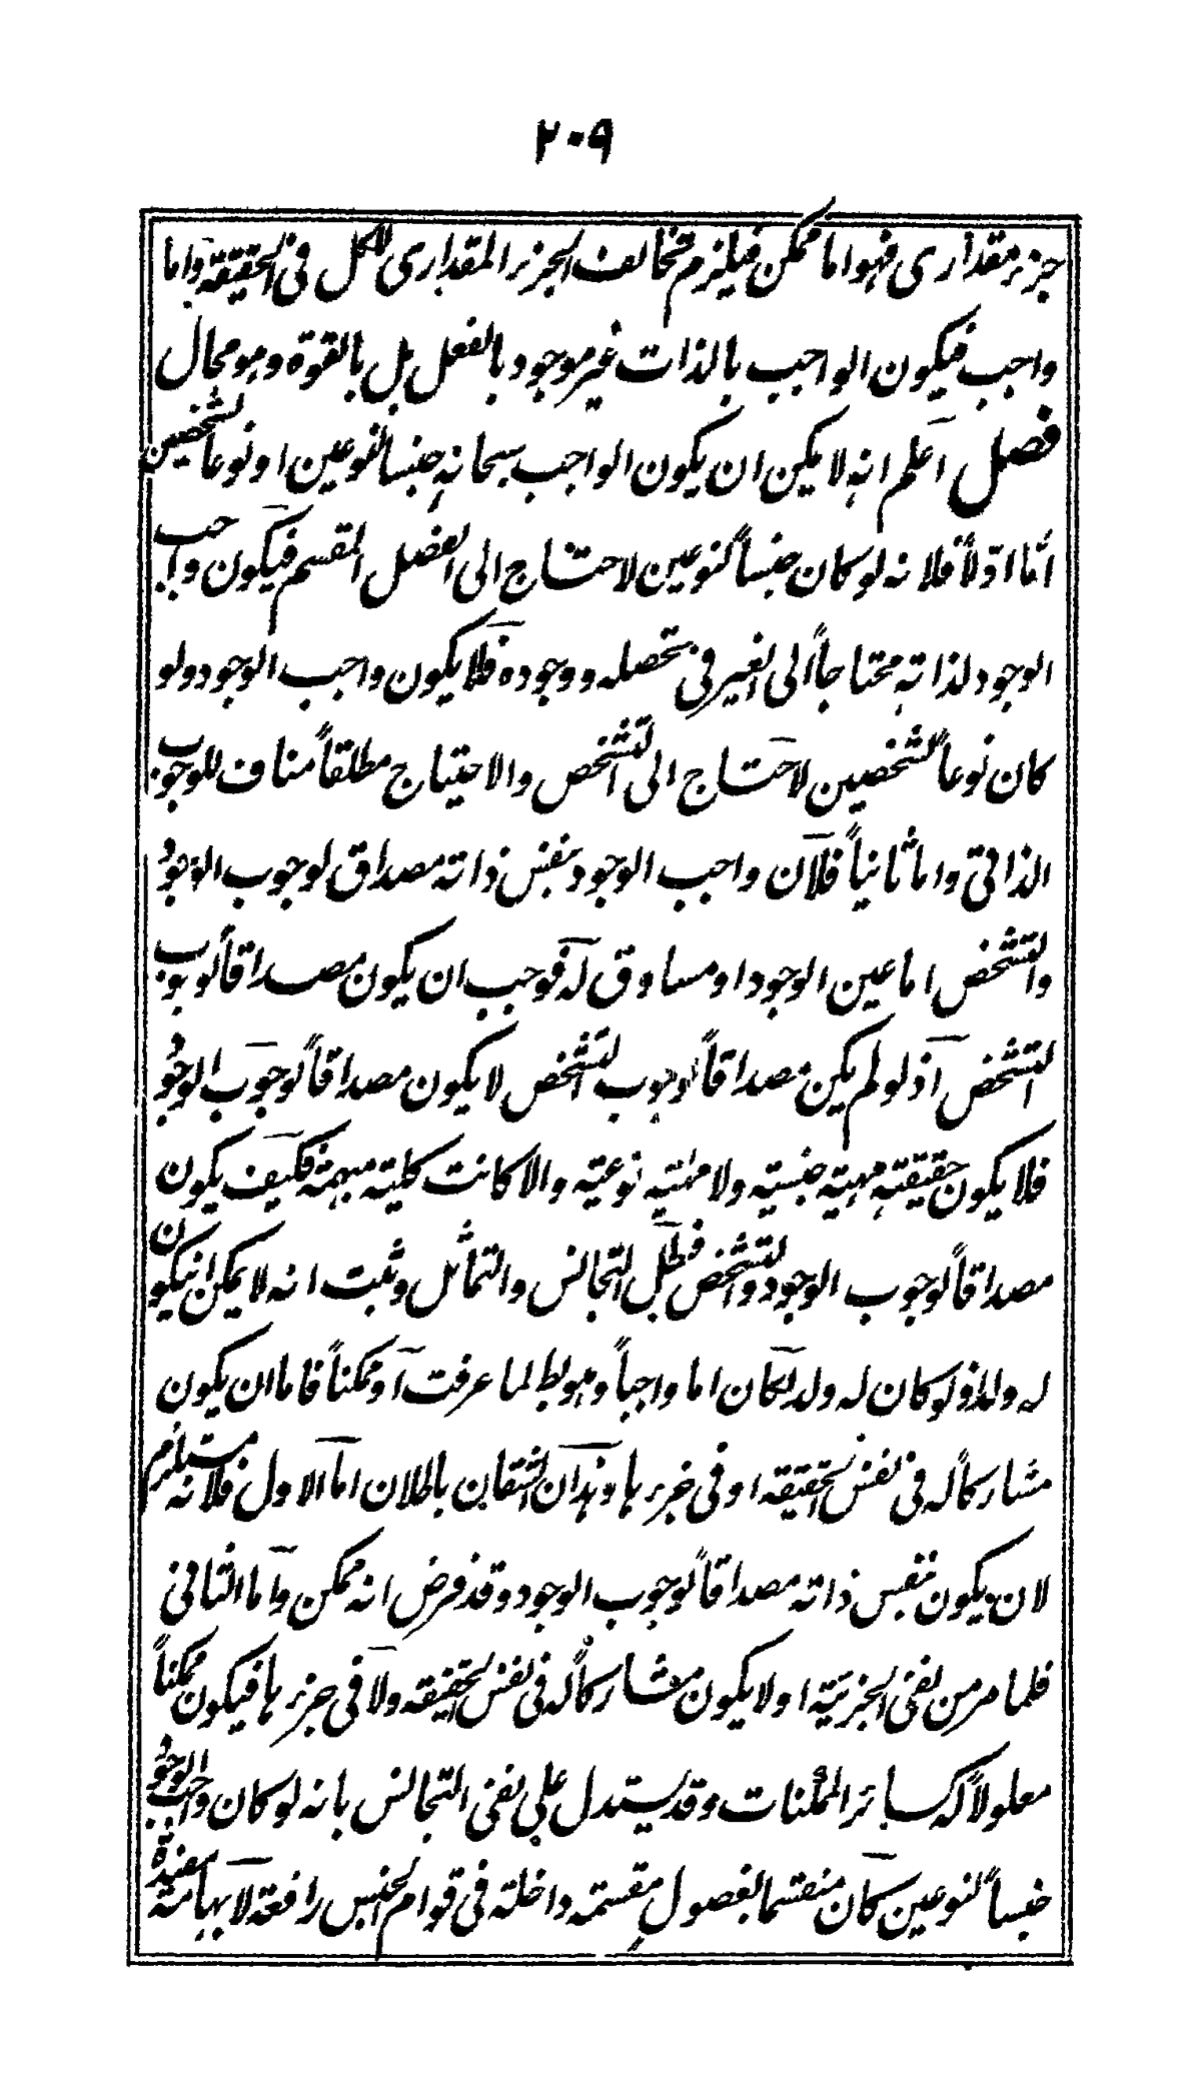 ٢٠٩
جزء مقداري فهو اما ممكن فيلزم تخالف الجزء المقداري للكل في الحقيقة واما
واجب فيكون الواجب بالذات غير موجود بالفعل بل بالقوة وهو محال
فصل اعلم انه لا يمكن ان يكون الواجب سبحانه جنسا لنوعين او نوعا لشخصين
امّا اوّلاً فلانه لو كان جنساً لنوعين لاحتاج الى الفصل المقسم فيكون واجب
الوجود لذاته محتاجاً الى الغير في تحصله ووجوده فلا يكون واجب الوجود ولو
كان نوعاً لشخصين لاحتاج الى التشخص والاحتياج مطلقاً مناف للوجوب
الذاتي واما ثانياً فلان واجب الوجود بنفس ذاته مصداق لوجوب الوجود
والتشخص اما عين الوجود او مساوق له فوجب ان يكون مصداقاً لوجوب
التشخص اذ لو لم يكن مصداقاً لوجوب التشخص لا يكون مصداقاً لوجوب الوجود
فلا يكون حقيقته مهية جنسية ولا مهية نوعية والا كانت كلية مبهمة فكيف يكون
مصداقاً لوجوب الوجود والتشخص فبطل التجانس والتماثل وثبت انه لا يمكن ان يكون
له ولد ولو كان له ولد لكان اما واجباً وهو بط لما عرفت او ممكناً فاما ان يكون
مشاركاً له في نفس الحقيقة او في جزءها وهذان الشقان باطلان اما الاول فلانه مستلزم
لان يكون بنفس ذاته مصداقاً لوجوب الوجود وقد فرض انه ممكن واما الثاني
فلما مر من نفي الجزئية او لا يكون مشاركاً له في نفس الحقيقة ولا في جزءها فيكون ممكناً
معلولاً له كسائر الممكنات وقد يستدل على نفي التجانس بانه لو كان واجب الوجود
جنساً لنوعين كان منقسما بفصول مقسمة داخلة في قوام الجنس رافعة لابهامه مفيدة